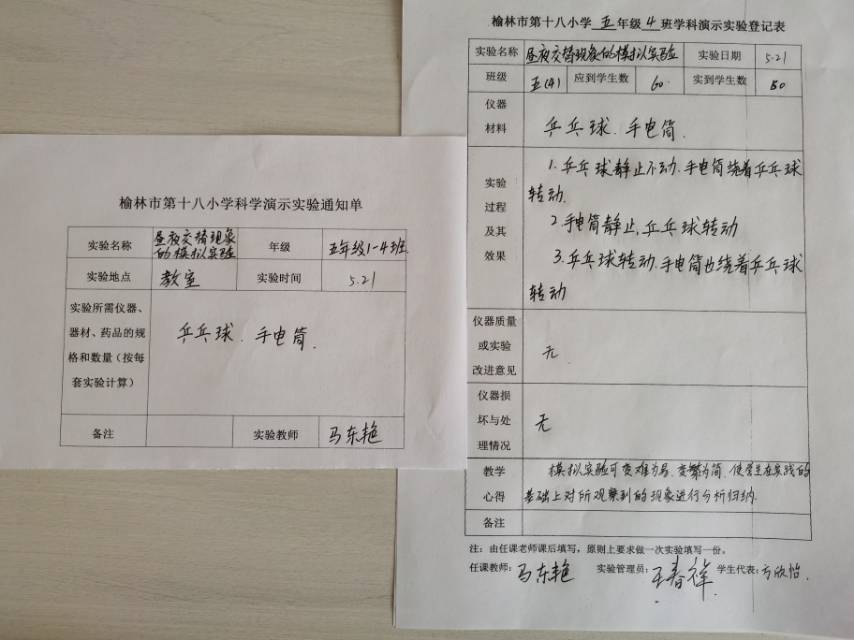 榆林市第十八小学科学演示实验通知单
实验名称 昼夜交替现象的模拟实验 年级 五年级1-4班
实验地点 教室 实验时间 5.21
实验所需仪器、
器材、药品的规
格和数量（按每
套实验计算）
乒乓球、手电筒.
备注 实验教师 马东艳
榆林市第十八小学 五 年级 4 班学科演示实验登记表
实验名称 昼夜交替现象的模拟实验 实验日期 5.21
班级 五(4) 应到学生数 60 实到学生数 60
仪器
材料
乒乓球、手电筒.
实验
过程
及其
效果
1.乒乓球静止不动.手电筒绕着乒乓球
转动.
2.手电筒静止,乒乓球转动
3.乒乓球转动.手电筒也绕着乒乓球
转动
仪器质量
或实验
改进意见
无
仪器损
坏与处
理情况
无
教学
心得
模拟实验可变难为易、变繁为简,使学生在实践的
基础上对所观察到的现象进行分析归纳.
备注
注：由任课老师课后填写，原则上要求做一次实验填写一份。
任课教师：马东艳 实验管理员：王春祥 学生代表：方欣怡.